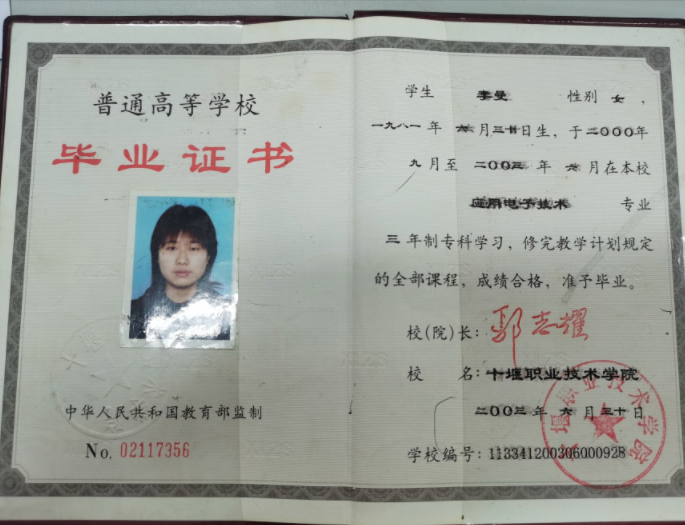 普通高等学校
毕业证书
中华人民共和国教育部监制
No. 02117356
学生 李曼 性别 女,
一九八一年 六月三十日生,于二000年
九月至 二00三 年 六月在本校
应用电子技术 专业
三年制专科学习,修完教学计划规定
的全部课程,成绩合格,准予毕业。
校(院)长: 郭志耀
校 名: 十堰职业技术学院
二00三年 六月三十日
十堰职业技术学院
学校编号: 113341200306000928